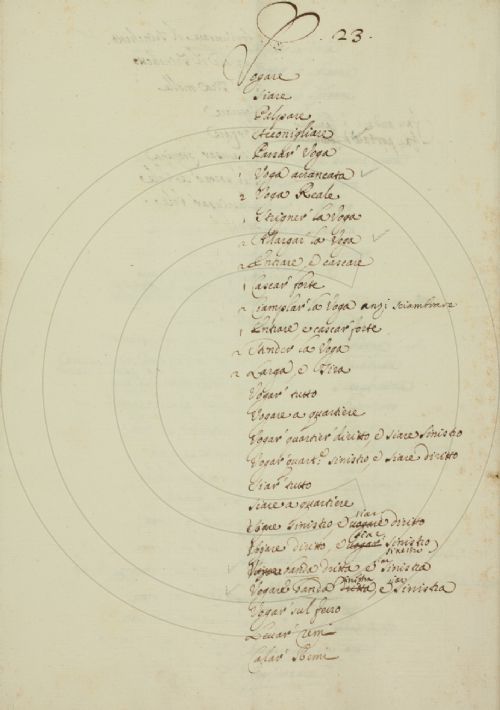 23.
Vogare
Siare
Palpare
Acconigliare
1 Passar' Voga
1 Voga arrancata
2 Voga Reale
1 Strigner' la Voga
2 Allargar' la Voga
2 Entrare, e cascare
1 Cascar' forte
2 la Voga anzi sciambrare
1 Entrare e cascar' forte
2 Tender' la Voga
2 Larga, e Tira
Vogar' tutto
Vogare a quartiere
Vogar' quartier' diritto, e siare sinistro
Vogar' quart.' sinistro, e siare diritto
Siar' tutto
Siare a quartiere
siar'
Vogare sinistro e vogare diritto
siar
Vogare diritto, e vogar' sinistro
sinistro
banda dritta, e sinistra
sinistra siar'
Vogare banda dritta, e sinistra
Vogar' sul ferro
Levar' remi
Calar' Remi